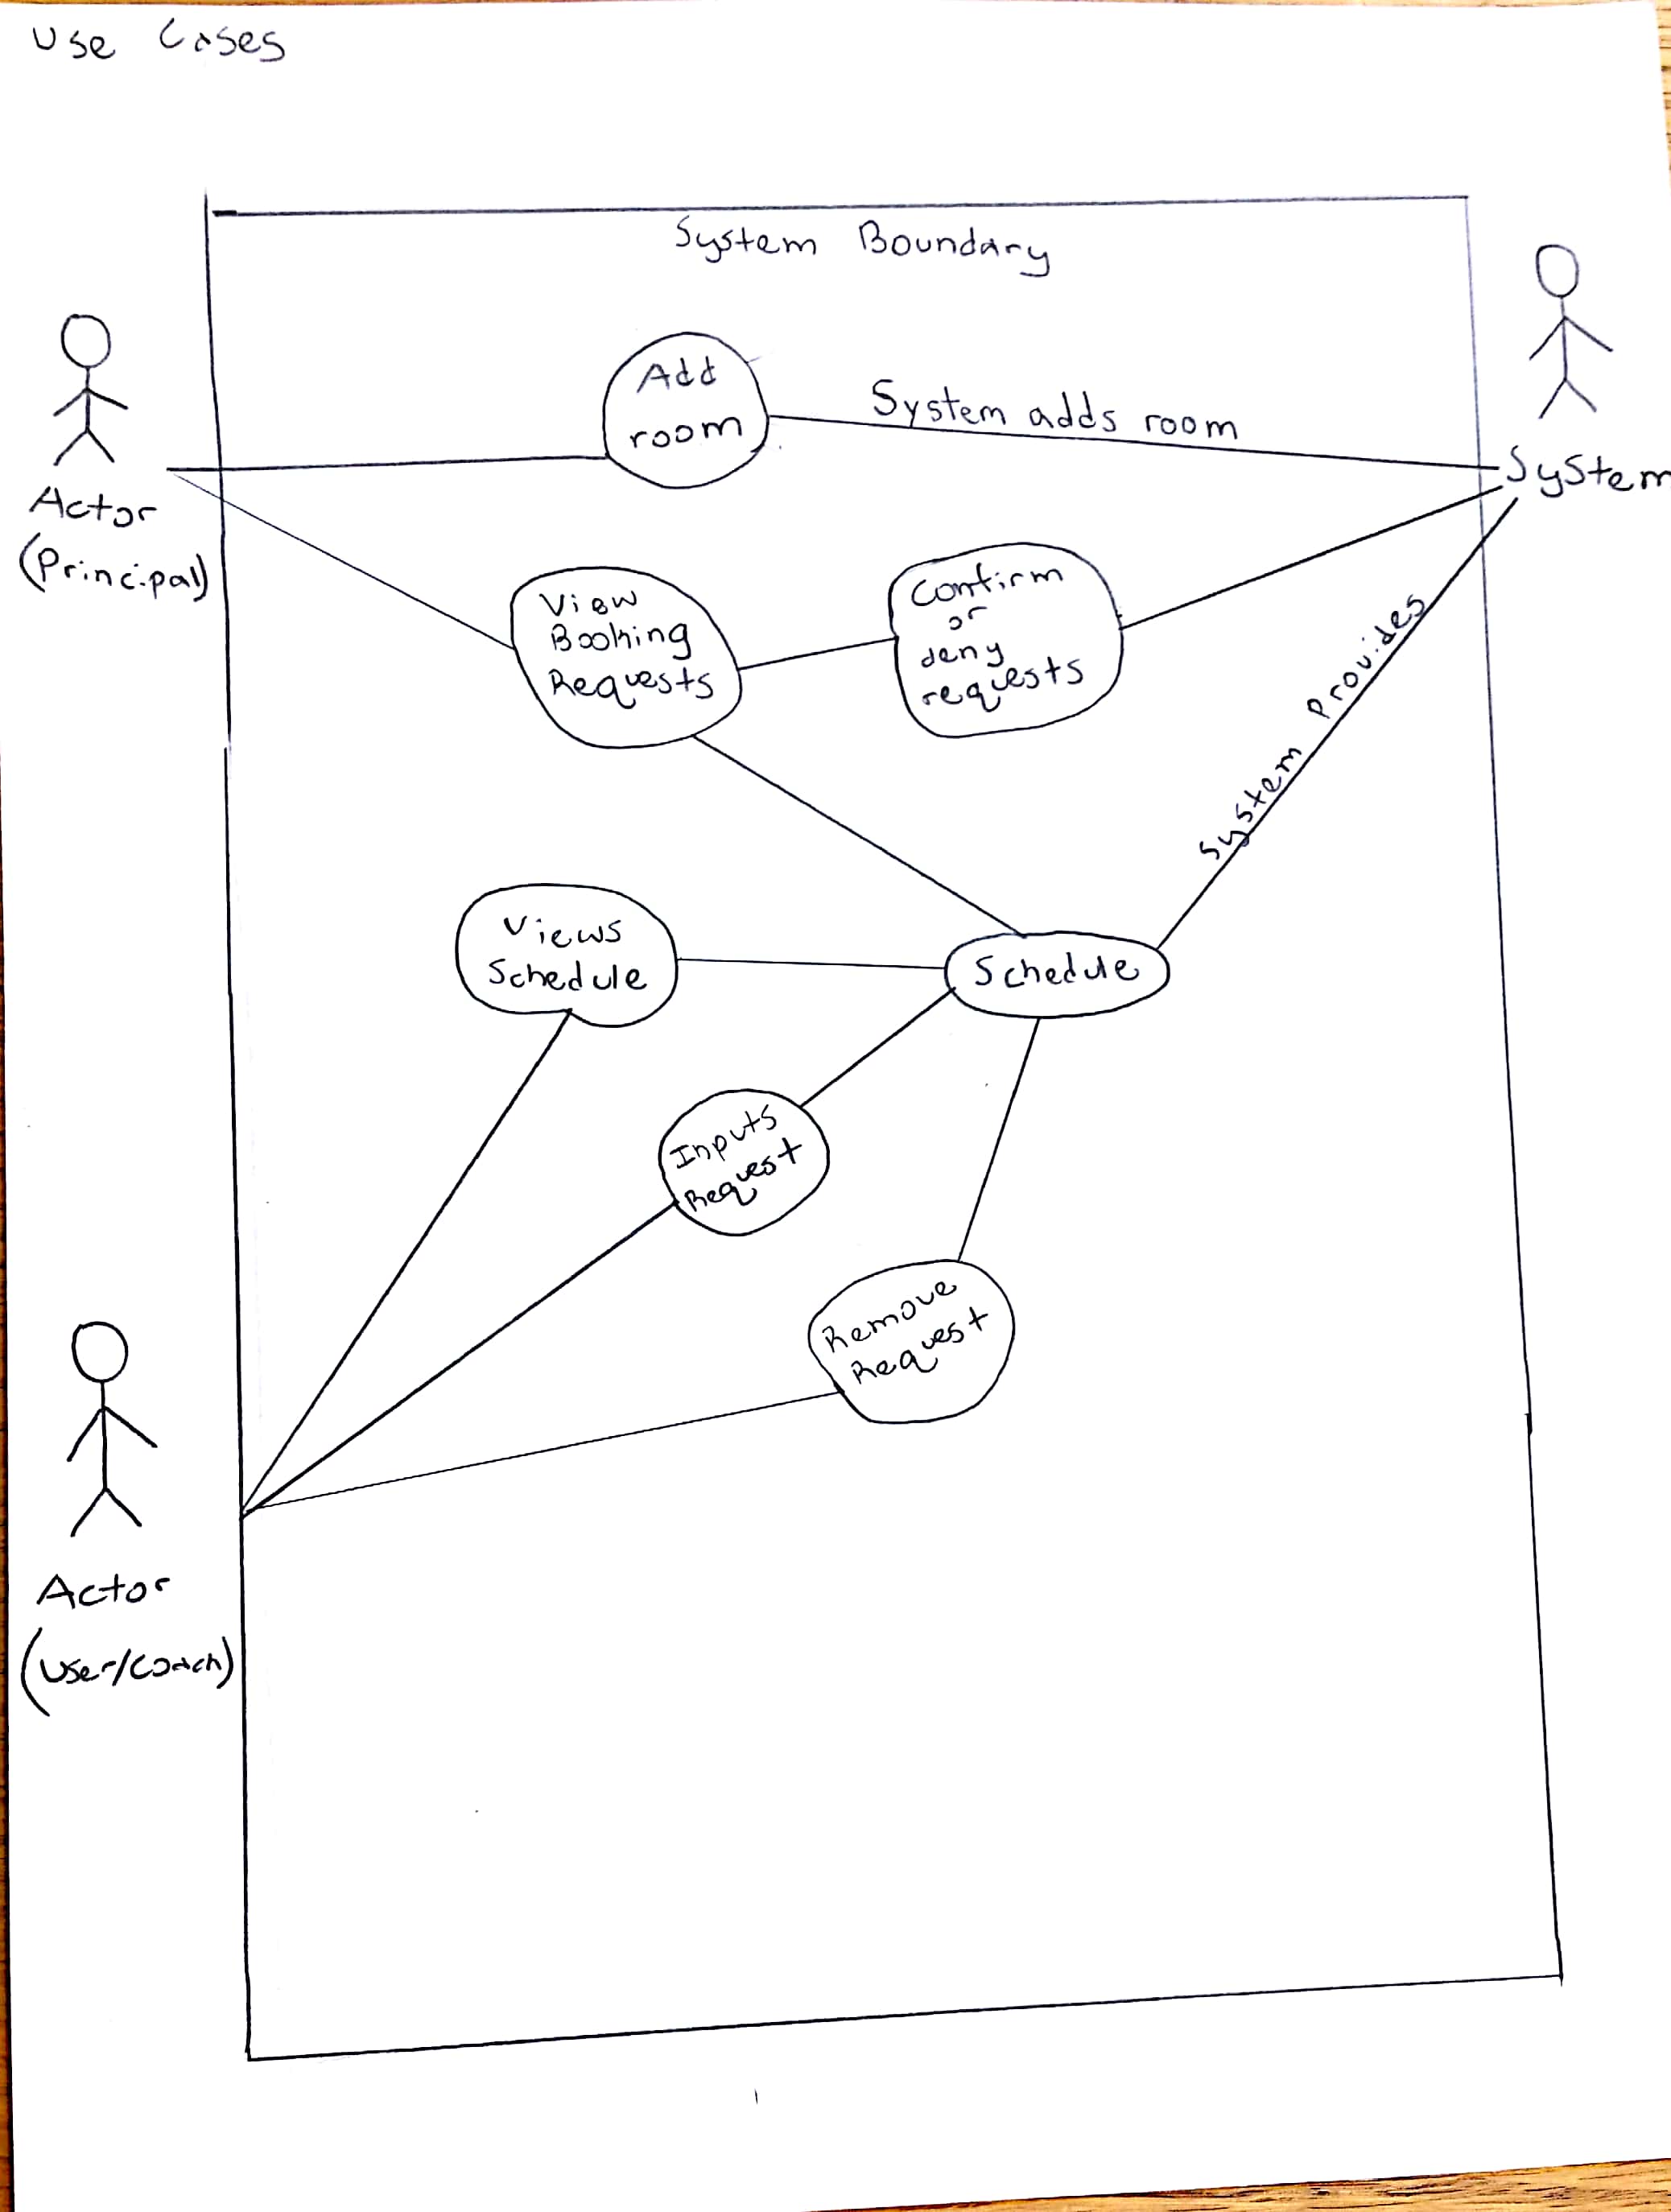 Use Cases
System Boundary
Add
room
System adds room
System
Actor
(Principal)
View
Booking
Requests
Confirm
or
deny
requests
System Provides
Views
Schedule
Schedule
Inputs
Request
Remove
Request
Actor
(User/Coach)